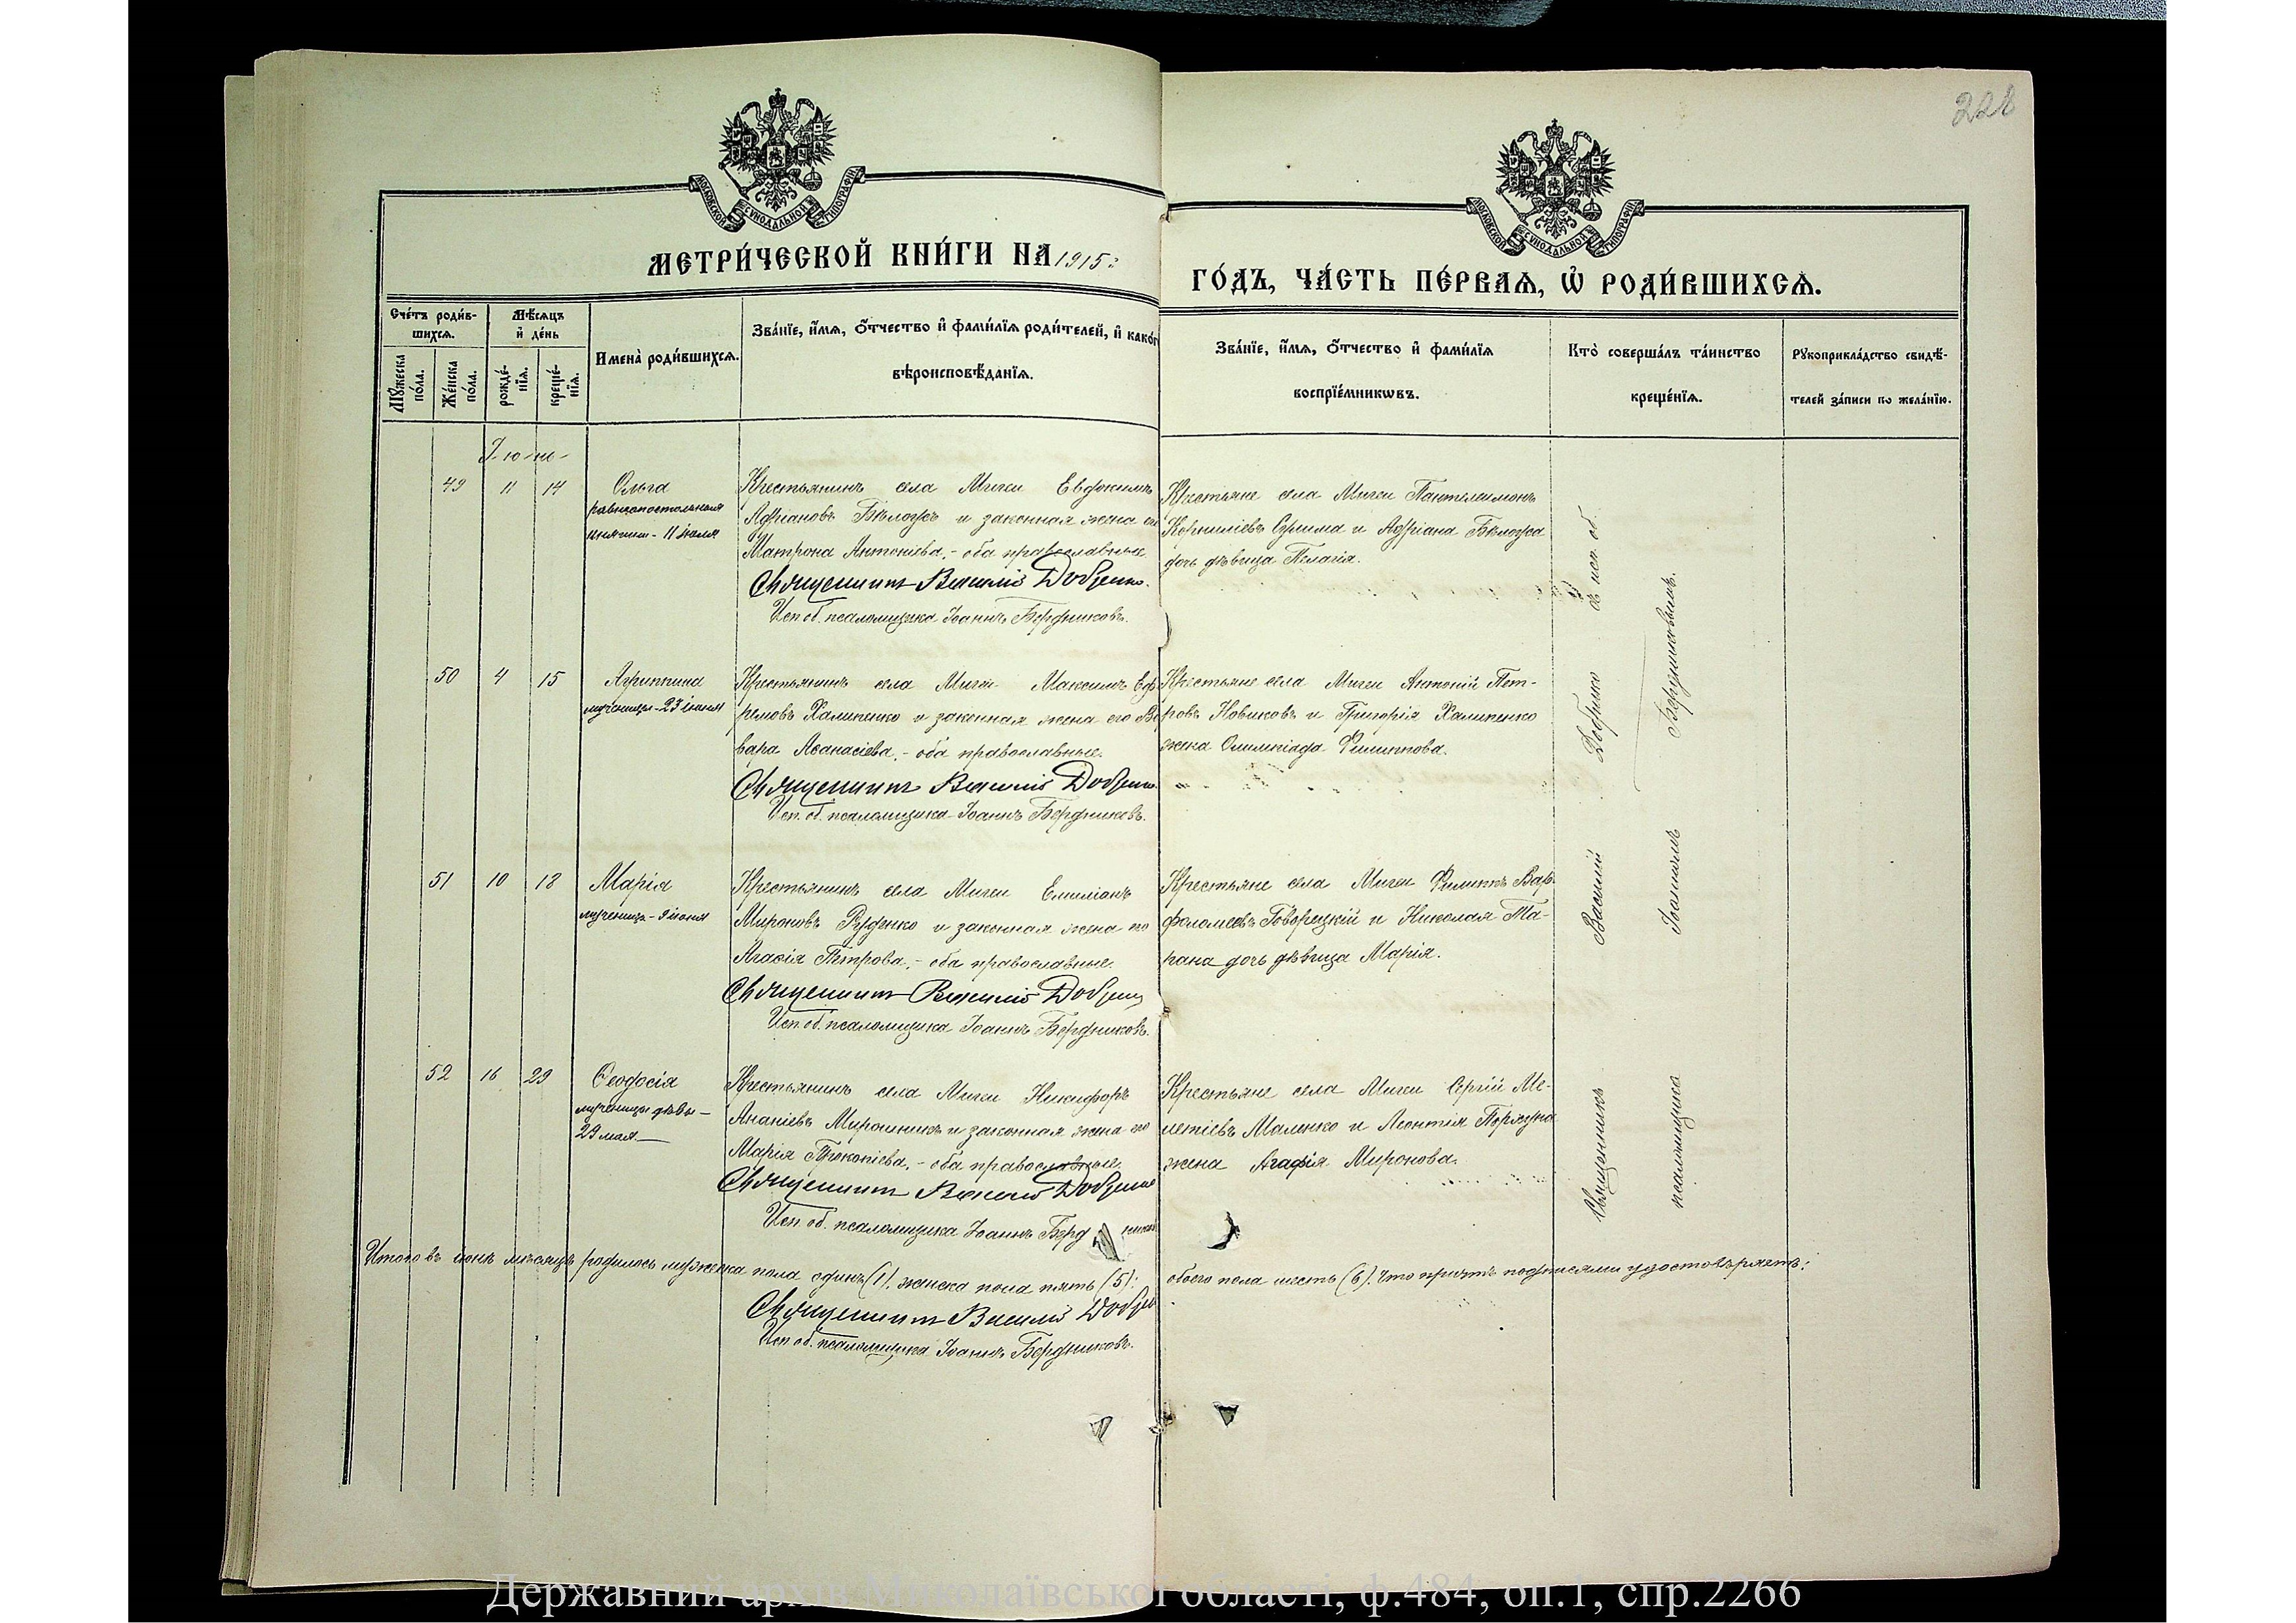 228
МОСКОВСКОЙ СѴНОДАЛЬНОЙ ТИПОГРАФІИ
МОСКОВСКОЙ СѴНОДАЛЬНОЙ ТИПОГРАФІИ
МЕТРИ́ЧЕСКОЙ КНИ́ГИ НА 1915:
ГО́ДЪ, ЧА́СТЬ ПЕ́РВАѦ, Ѡ҆ РОДИ́ВШИХСѦ.
Сче́тъ роди́в-
шихсѧ.
Мѣ́сѧцъ
и҆ де́нь
Мꙋ́жеска
по́ла.
Же́нска
по́ла.
рожде́-
нїѧ.
креще́-
нїѧ.
Имена̀ роди́вшихсѧ.
Зва́нїе, и҆́мѧ, ѻ҆́тчество и҆ фами́лїѧ роди́телей, и҆ како́гѡ
вѣроисповѣ́данїѧ.
Зва́нїе, и҆́мѧ, ѻ҆́тчество и҆ фами́лїѧ
воспрїе́мникѡвъ.
Кто̀ соверша́лъ та́инство
креще́нїѧ.
Рꙋкоприкла́дство свидѣ́-
телей за́писи по жела́нїю.
49 11 14 Ольга
равноапостольныя
княгини - 11 іюля
Крестьянинъ села Мигеи Евдокимъ
Адріановъ Бѣлоусъ и законная жена его
Матрона Антоніева, - оба православные
Священникъ Василій Добренко.
Исп. об. псаломщика Іоаннъ Бердниковъ.
Крестьяне села Мигеи Пантелеимонъ
Корниліевъ и Адріана Бѣлоуса
дочь дѣвица Пелагія.
50 4 15 Агриппина
мученицы - 23 іюня
Крестьянинъ села Мигеи Максимъ Еф
ремовъ Халипенко и законная жена его Вар
вара Аѳанасіева, - оба православные.
Священникъ Василій Добренко
Исп. об. псаломщика Іоаннъ Бердниковъ.
Крестьяне села Мигеи Антоній Пет-
ровъ Новиковъ и Григорія Халипенко
жена Олимпіада Филиппова.
51 10 18 Марія
мученицы - 9 іюня
Крестьянинъ села Мигеи Емиліанъ
Мироновъ Руденко и законная жена его
Агаѳія Петрова, - оба православные.
Священникъ Василій Добренко
Исп. об. псаломщика Іоаннъ Бердниковъ.
Крестьяне села Мигеи Филиппъ Вар-
фоломеевъ Говорецкій и Николая Та-
рана дочь дѣвица Марія.
52 16 29 Ѳеодосія
мученицы дѣвы -
29 мая
Крестьянинъ села Мигеи Никифоръ
Ананіевъ Мирошникъ и законная жена его
Марія Прокопіева, - оба православные.
Священникъ Василій Добренко
Исп. об. псаломщика Іоаннъ Берд
Крестьяне села Мигеи Сергій Ме-
летіевъ Маленко и Леонтія
жена Агафія Миронова.
Священникъ Василій Добренко съ исп. об.
псаломщика Іоанномъ Бердниковымъ.
Итого въ іюнѣ мѣсяцѣ родилось мужеска пола одинъ (1), женска пола пять (5); обоего пола шесть (6). Что причтъ подписями удостовѣряетъ:
Священникъ Василій Добренко
Исп. об. псаломщика Іоаннъ Бердниковъ.
Державний архів Миколаївської області, ф.484, оп.1, спр.2266